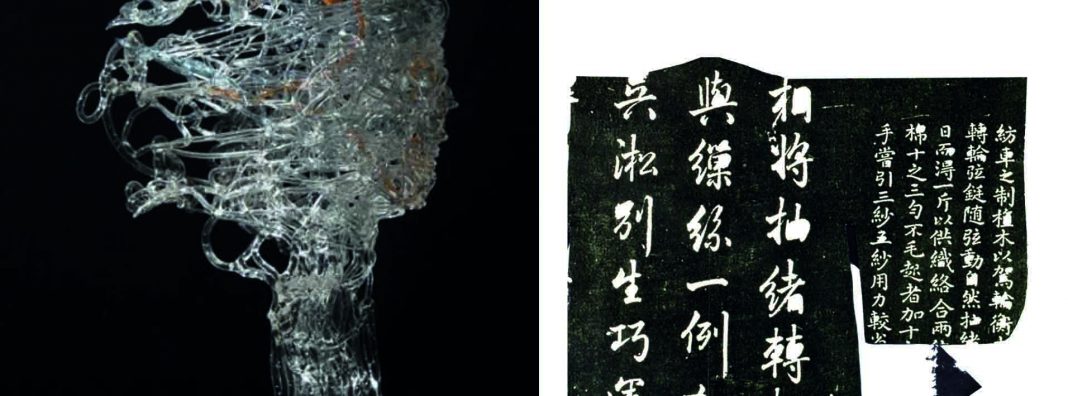 紡車之制植木以駕輪衡
轉輪弦鋌隨弦動自然抽緒
日而得一斤以供織絡合兩
棉十之三勻不毛起者加十
手嘗引三紗五紗用力較省
相將抽緒轉
與繅絲一例
吳淞別生巧